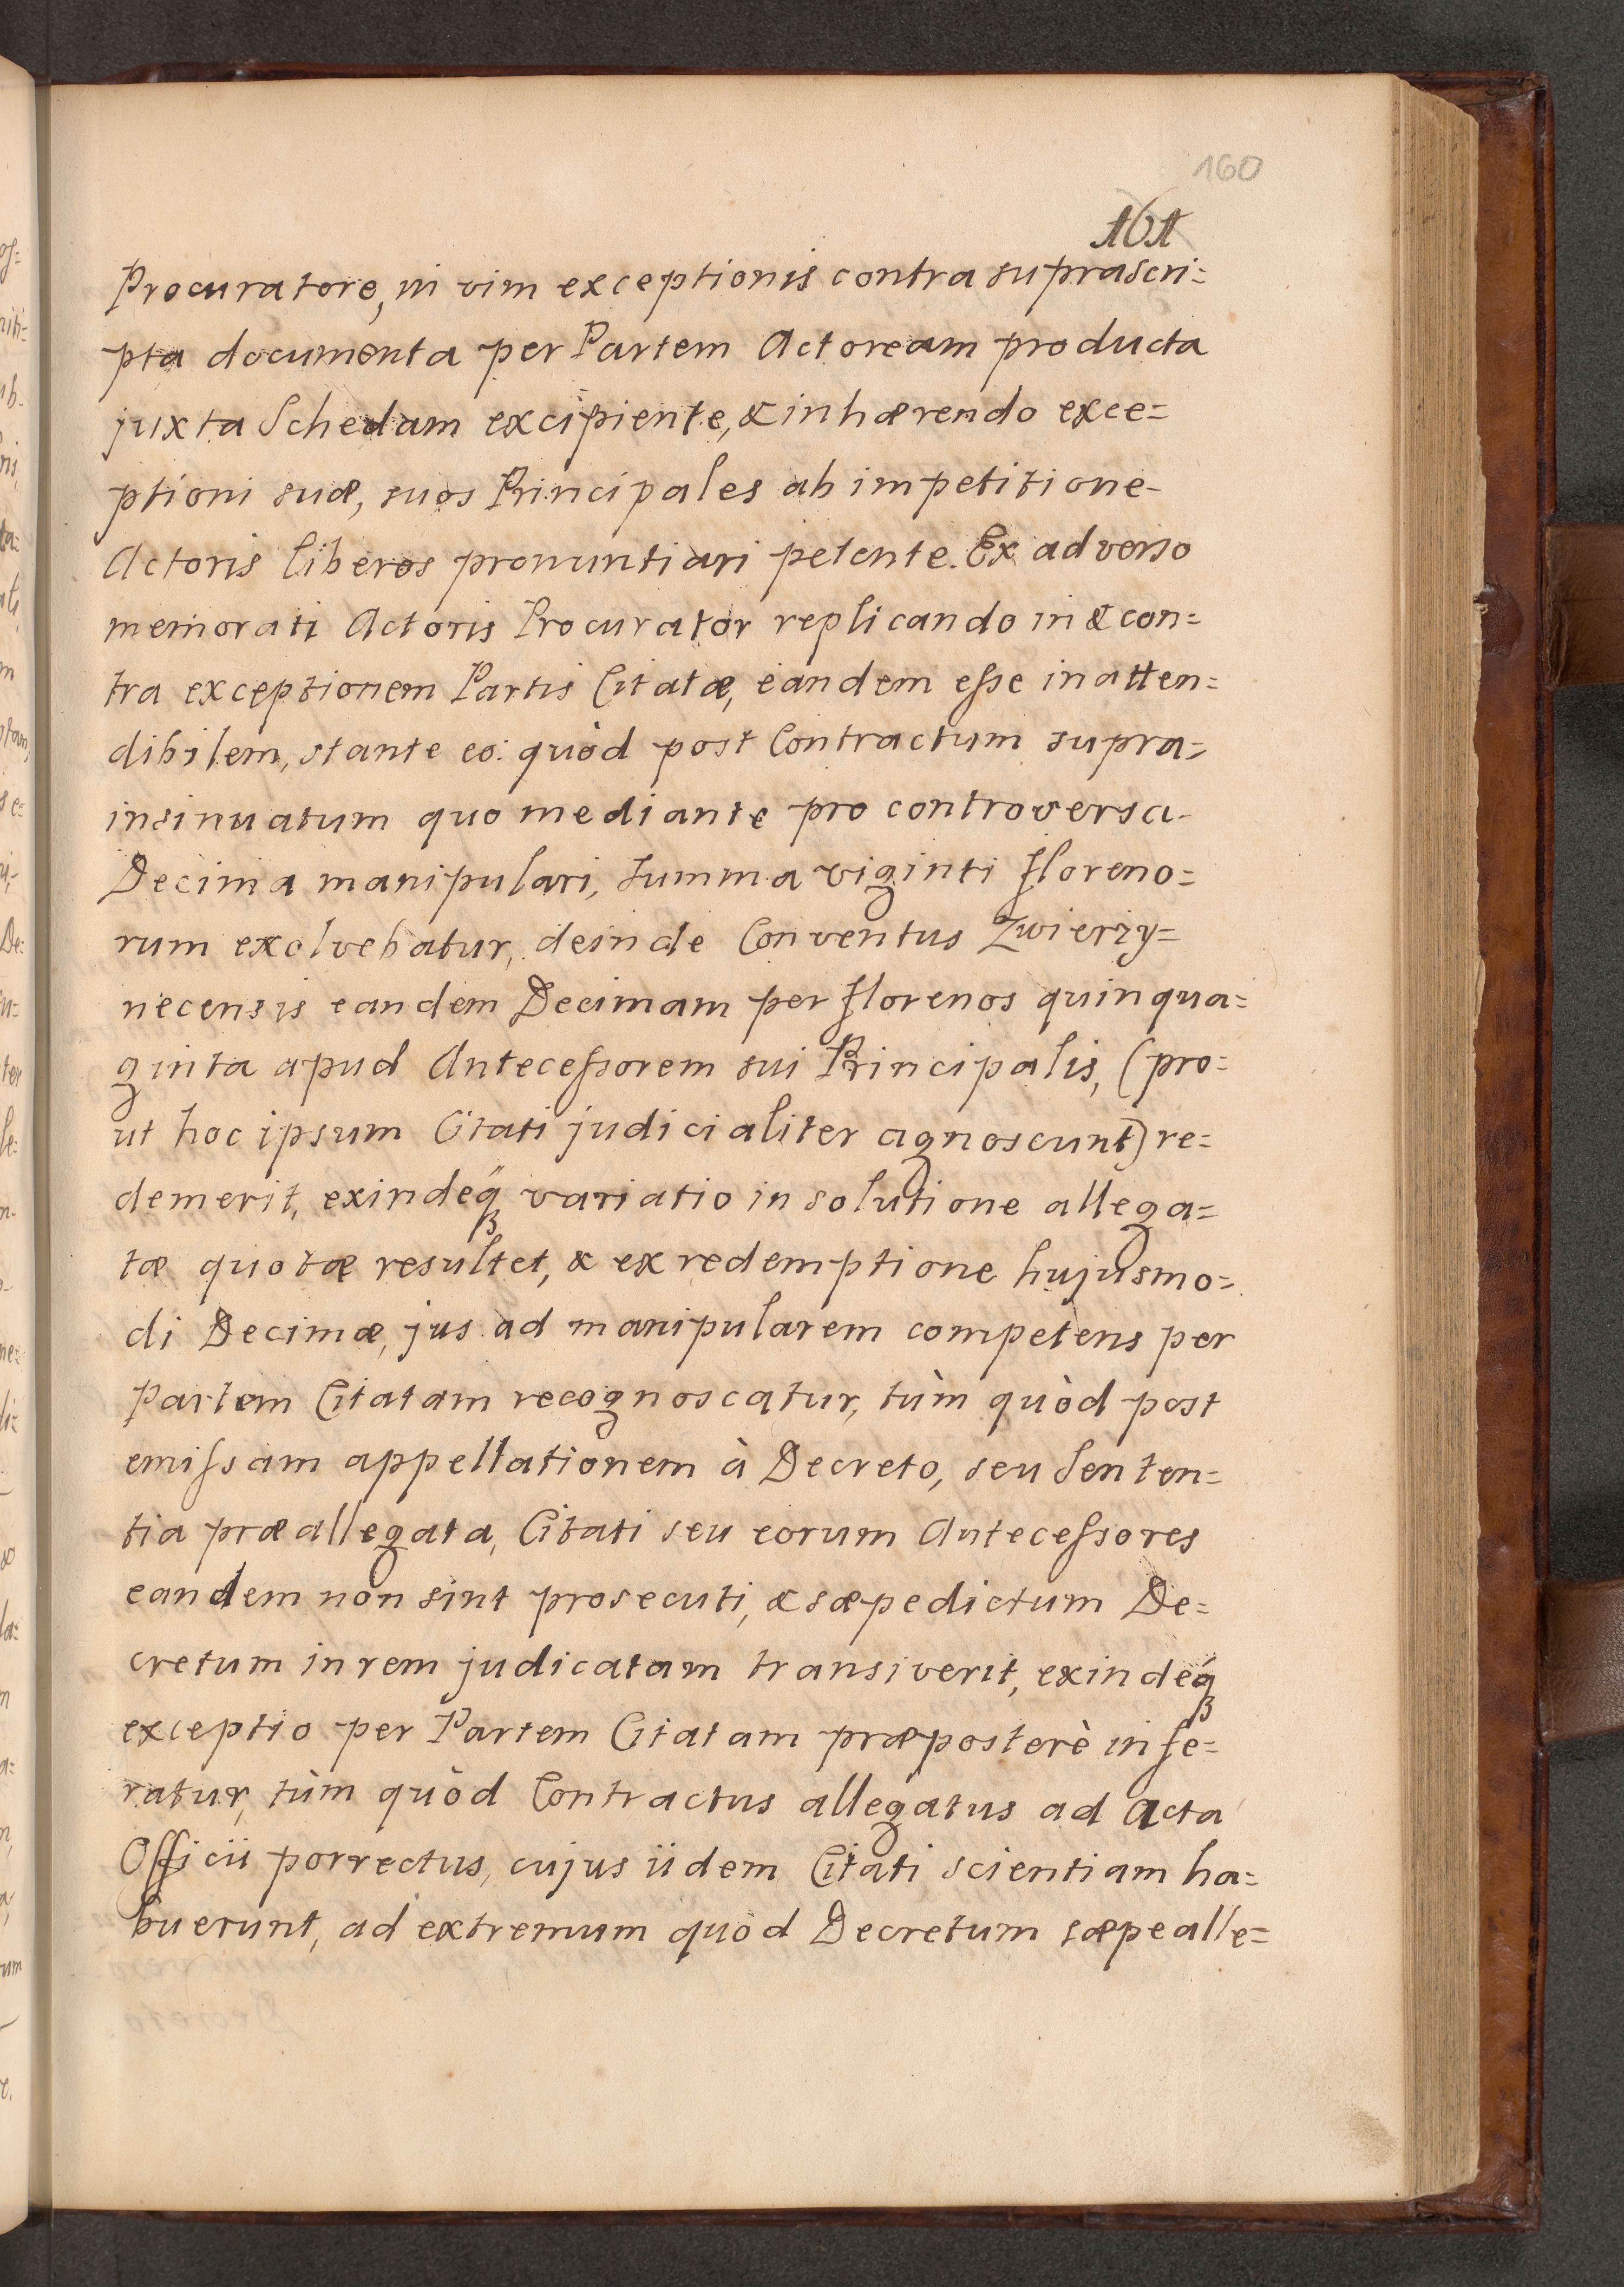 160
161
Procuratore, in vim exceptionis contra suprascri=
pta documenta per Partem Actoream producta
juxta Schedam excipiente, & inhærendo exce=
ptioni suæ, suos Principales ab impetitione-
Actoris liberos pronuntiari petente. Ex adverso
memorati Actoris Procurator replicando in & con=
tra exceptionem Partis Citatæ, eandem esse inatten=
dibilem, stante eo: quòd post Contractum supra=
insinuatum quo mediante pro controversa-
Decima manipulari, summa viginti floreno=
rum exolvebatur, deinde Conventus Zwierzy=
necensis eandem Decimam per florenos quinqua=
ginta apud Antecessorem sui Principalis, (pro=
ut hoc ipsum Citati judicialiter agnoscunt) re=
demerit, exindeq́ꝫ variatio in solutione allega=
tæ quotæ resultet, & ex redemptione hujusmo=
di Decimæ, jus ad manipularem competens per
Partem Citatam recognoscatur, tùm quòd post
emissam appellationem à Decreto, seu Senten=
tia præallegata, Citati seu eorum Antecessores
eandem non sint prosecuti, & sæpedictum De=
cretum in rem judicatam transiverit, exindeq́ꝫ
exceptio per Partem Citatam præposterè infe=
ratur, tùm quòd Contractus allegatus ad Acta
Officii porrectus, cujus iidem Citati scientiam ha=
buerunt, ad extremum quòd Decretum sæpealle=